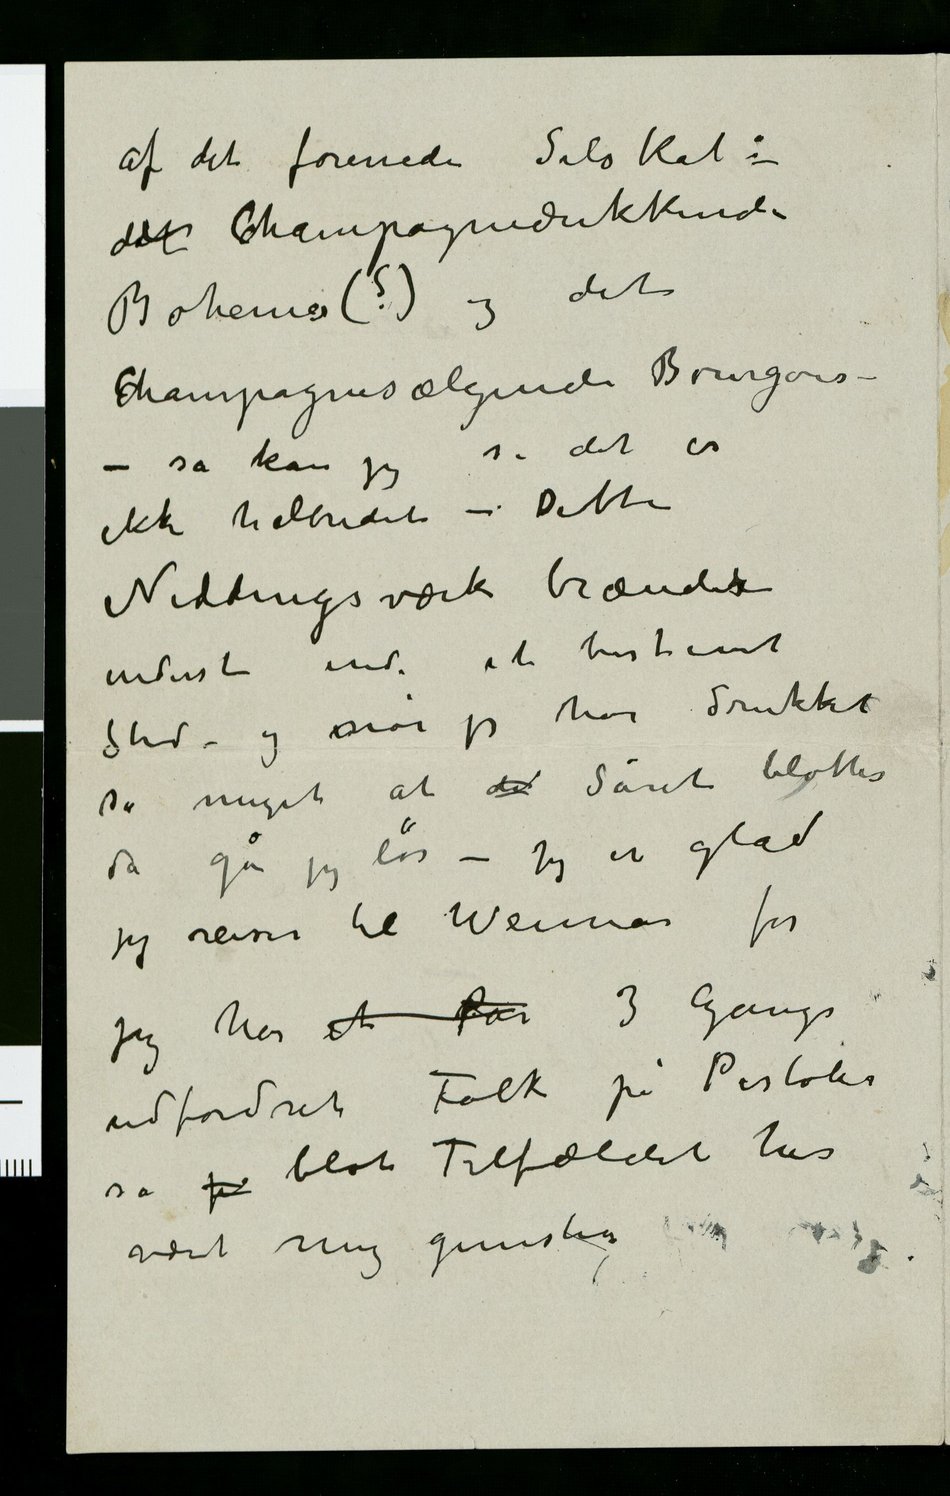 af det forenede Selskab: –
det Champagnedrikkende
Boheme(?) og det
Champagnesælgende Bourgois –
– så kan jeg se det er
ikke helbredet – Dette
Niddingsværk brænder
inderst inde et bestemt
Sted – og når jeg har drukket
så meget at det Såret blottes
da går jeg løs – jeg er glad
jeg reiser til Weimar for
jeg har et Par 3 Gange
udfordret Folk på Pistoler
så på blot Tilfældet har
vært mig gunstig